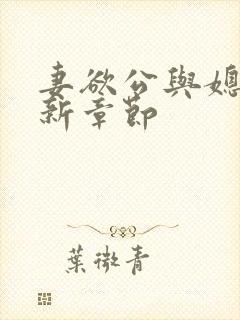 妻欲公與媳
新章節
葉微青